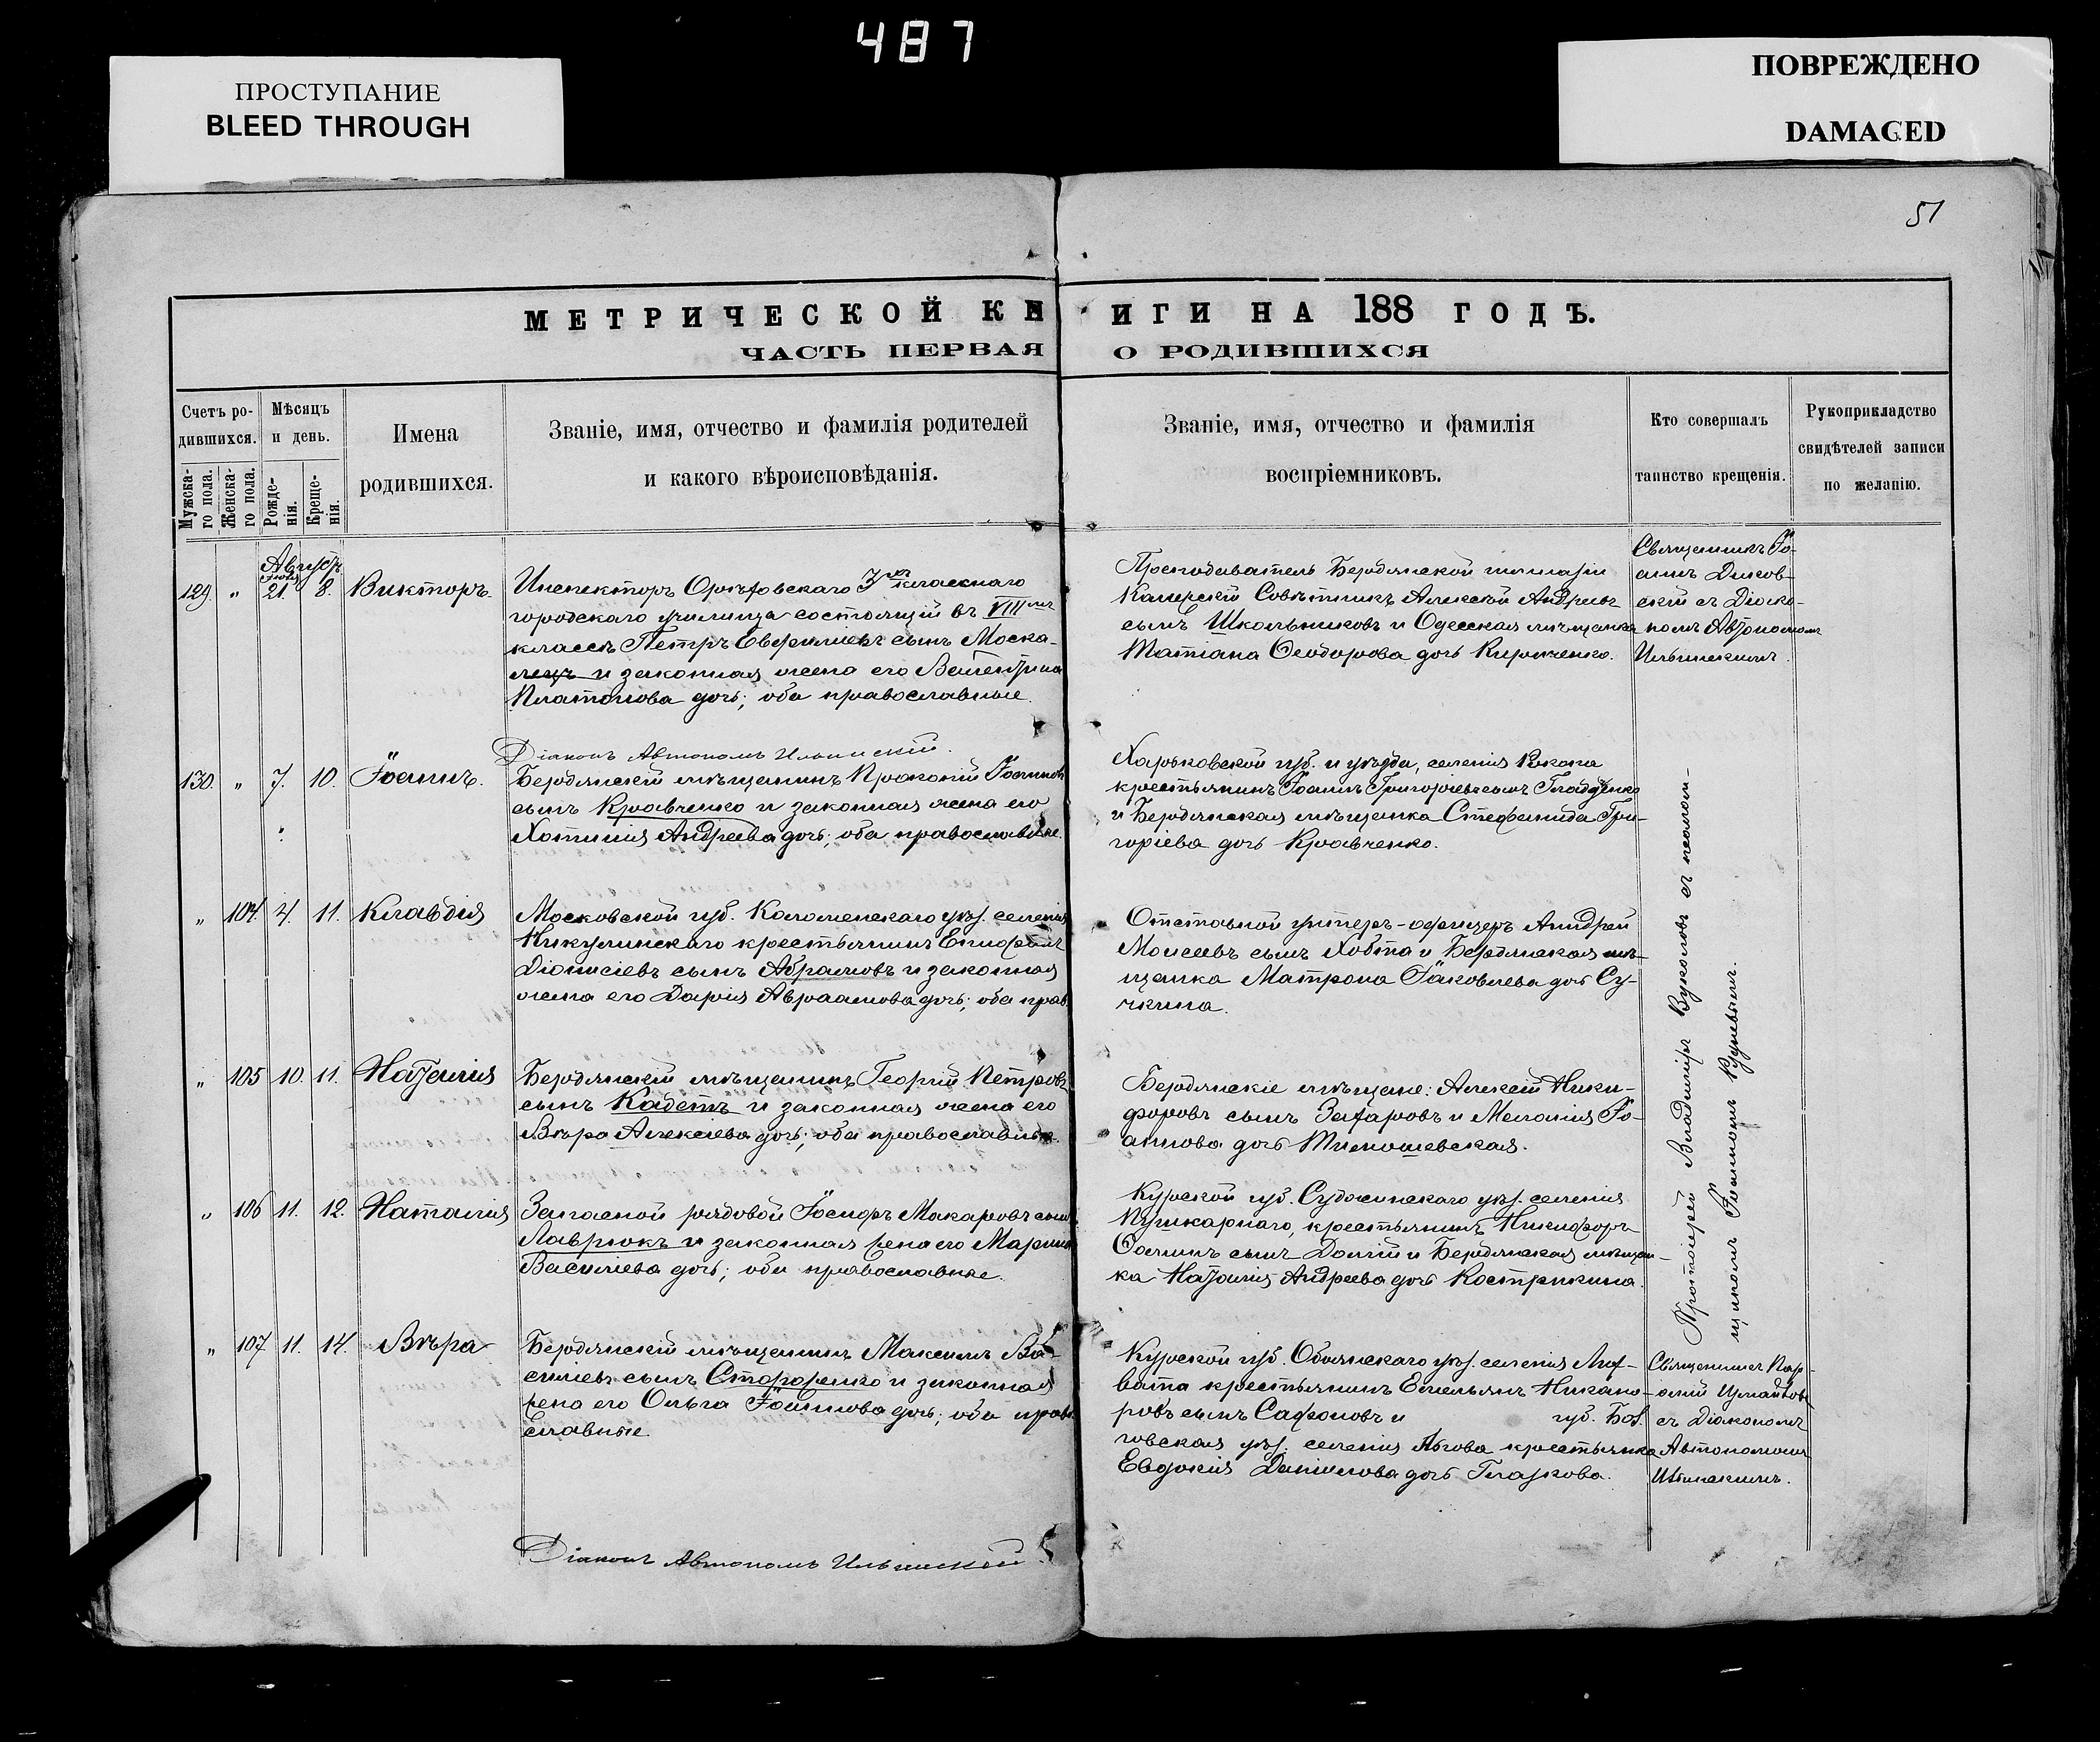 487
ПРОСТУПАНИЕ
BLEED THROUGH
ПОВРЕЖДЕНО
DAMAGED
51
МЕТРИЧЕСКОЙ КНИГИ НА 188 ГОДЪ.
ЧАСТЬ ПЕРВАЯ О РОДИВШИХСЯ
Счетъ ро-
дившихся.
Мужска-
го пола.
Женска-
го пола.
Мѣсяцъ
и день.
Рожде-
нія.
Креще-
нія.
Имена
родившихся.
Званіе, имя, отчество и фамилія родителей
и какого вѣроисповѣданія.
Званіе, имя, отчество и фамилія
воспріемниковъ.
Кто совершалъ
таинство крещенія.
Рукоприкладство
свидѣтелей записи
по желанію.
Августъ
Іюля
129. " 21. 8. Викторъ.
Инспекторъ Орѣховскаго 3хъ класснаго
городскаго училища состоящій въ VIII мъ
классѣ Петръ Евфиміевъ сынъ Моска-
лецъ и законная жена его Валентина
Платонова дочь; оба православные.
Преподаватель Бердянской гимназіи
Совѣтникъ Алексѣй Андреевъ
сынъ Школьниковъ и Одесская мѣщанка
Татіана Ѳеодорова дочь Кириченко.
Священникъ Іо-
аннъ
скій съ Діако-
номъ Автономомъ
Ильинскимъ.
Діаконъ Автономъ Ильинскій.
130. " 7. 10. Іоаннъ.
Бердянскій мѣщанинъ Прокопій Іоанновъ
сынъ Кравченко и законная жена его
Хотинія Андреева дочь; оба православные.
Харьковской губ. и уѣзда, селенія Рокона
крестьянинъ Іоаннъ Григоріевъ сынъ Гладченко
и Бердянская мѣщанка Стефанида Гри-
горіева дочь Кравченко.
" 104. 4. 11. Клавдія
Московской губ. Коломенскаго уѣз. селенія
Никулинскаго крестьянинъ Епифанъ
Діонисіевъ сынъ Абрамовъ и законная
жена его Дарія Авраамова дочь; оба прав.
Отставной унтеръ-офицеръ Андрей
Моисеевъ сынъ Хобта и Бердянская мѣ-
щанка Матрона Іаковлева дочь Су-
чкина.
" 105 10. 11. Наталія
Бердянскій мѣщанинъ Георгій Петровъ
сынъ Кадетъ и законная жена его
Вѣра Алексіева дочь; оба православные.
Бердянскіе мѣщане: Алексѣй Ники-
форовъ сынъ Захаровъ и Меланія Іо-
аннова дочь Тимошевская.
" 106 11. 12. Наталія
Запасной рядовой Іосифъ Макаровъ сынъ
Лаврюкъ и законная жена его Марина
Василіева дочь; оба православные.
Курской губ. Суджинскаго уѣз. селенія
Пушкарнаго, крестьянинъ Никифоръ
сынъ Долгій и Бердянская мѣщан-
ка Наталія Андреева дочь Кострикина.
Протоіерей Владиміръ Вуколовъ съ псалом-
щикомъ Іоанномъ
" 107 11. 14. Вѣра
Бердянскій мѣщанинъ Максимъ Ва-
силіевъ сынъ Стофоренко и законная
жена его Ольга Іоаннова дочь; оба право-
славные.
Курской губ. Обоянскаго уѣз. селенія
крестьянинъ Емельянъ Никано-
ровъ сынъ Сафоновъ и губ.
уѣз. селенія Льгова крестьянка
Евдокія Даніилова дочь Глазкова.
Священникъ
съ Діакономъ
Автономомъ
Ильинскимъ.
Діаконъ Автономъ Ильинскій